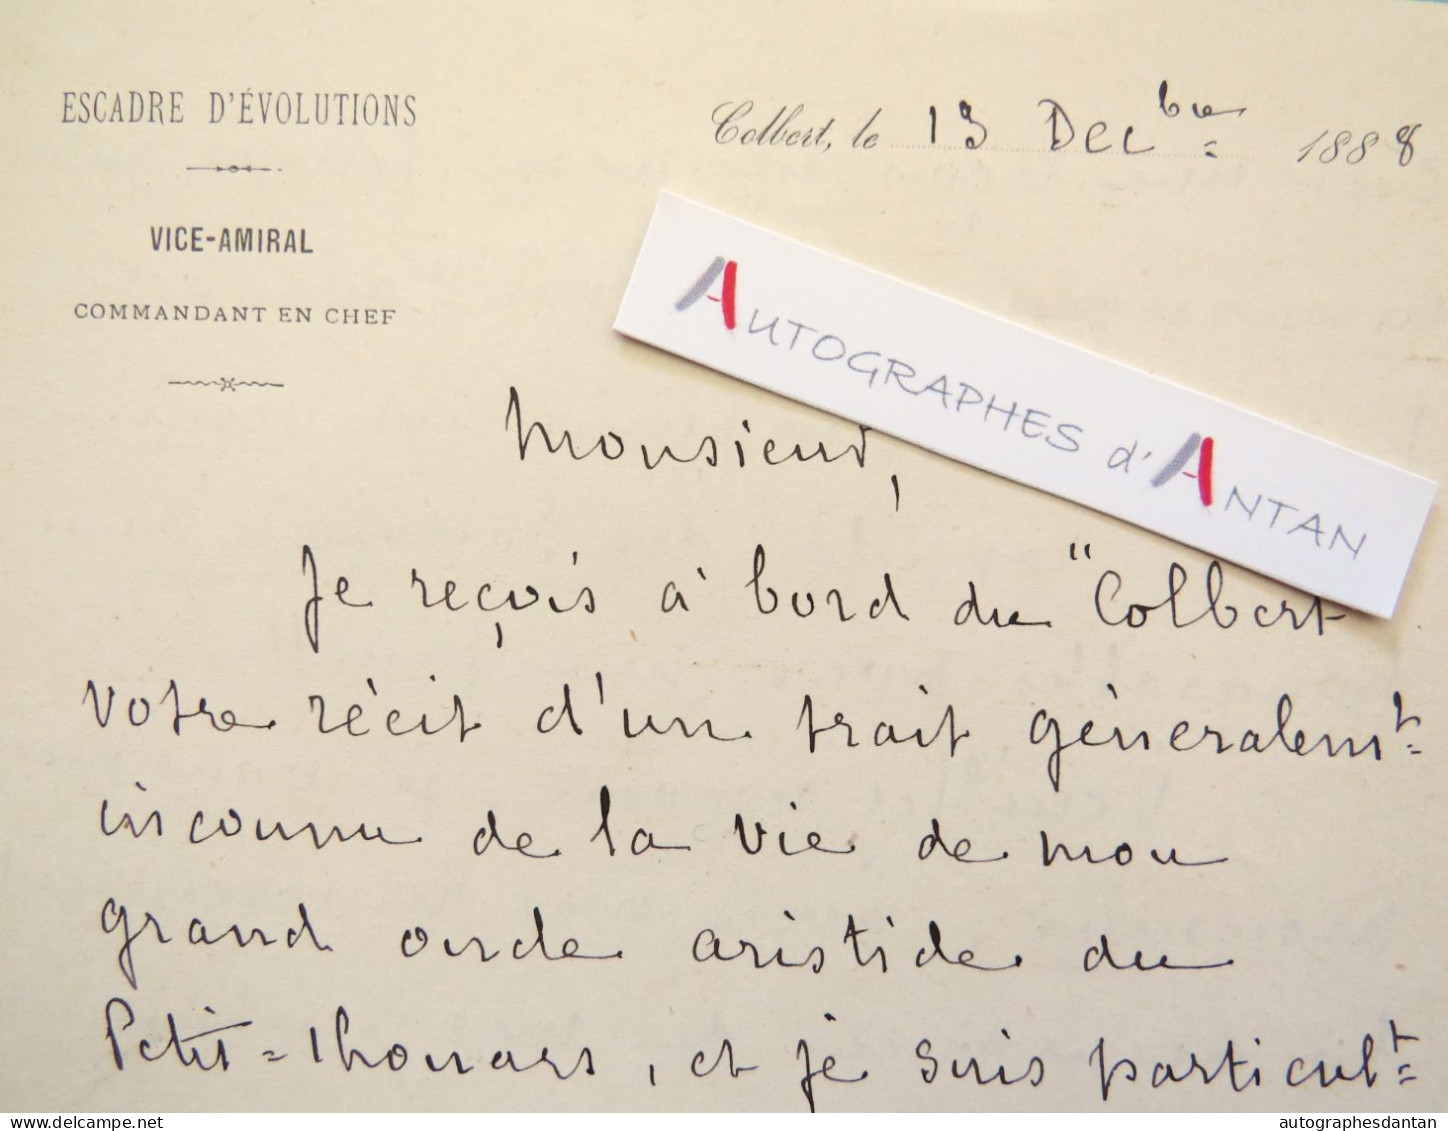 ESCADRE D'ÉVOLUTIONS
VICE-AMIRAL
COMMANDANT EN CHEF
Colbert, le 13 Dec bre 1888
AUTOGRAPHES d'ANTAN
Monsieur,
Je reçois à bord du "Colbert
votre récit d'un trait généralemt
inconnu de la vie de mon
grand oncle aristide du
Petit-Thouars, et je suis particult
delcampe.net
autographesdantan